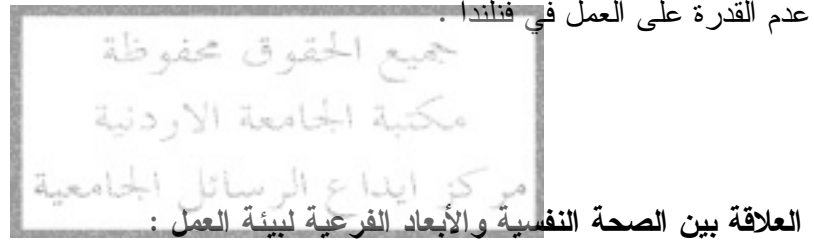 عدم القدرة على العمل في فنلندا .
جميع الحقوق محفوظة
مكتبة الجامعة الاردنية
مركز ايداع الرسائل الجامعية
العلاقة بين الصحة النفسية والأبعاد الفرعية لبيئة العمل :